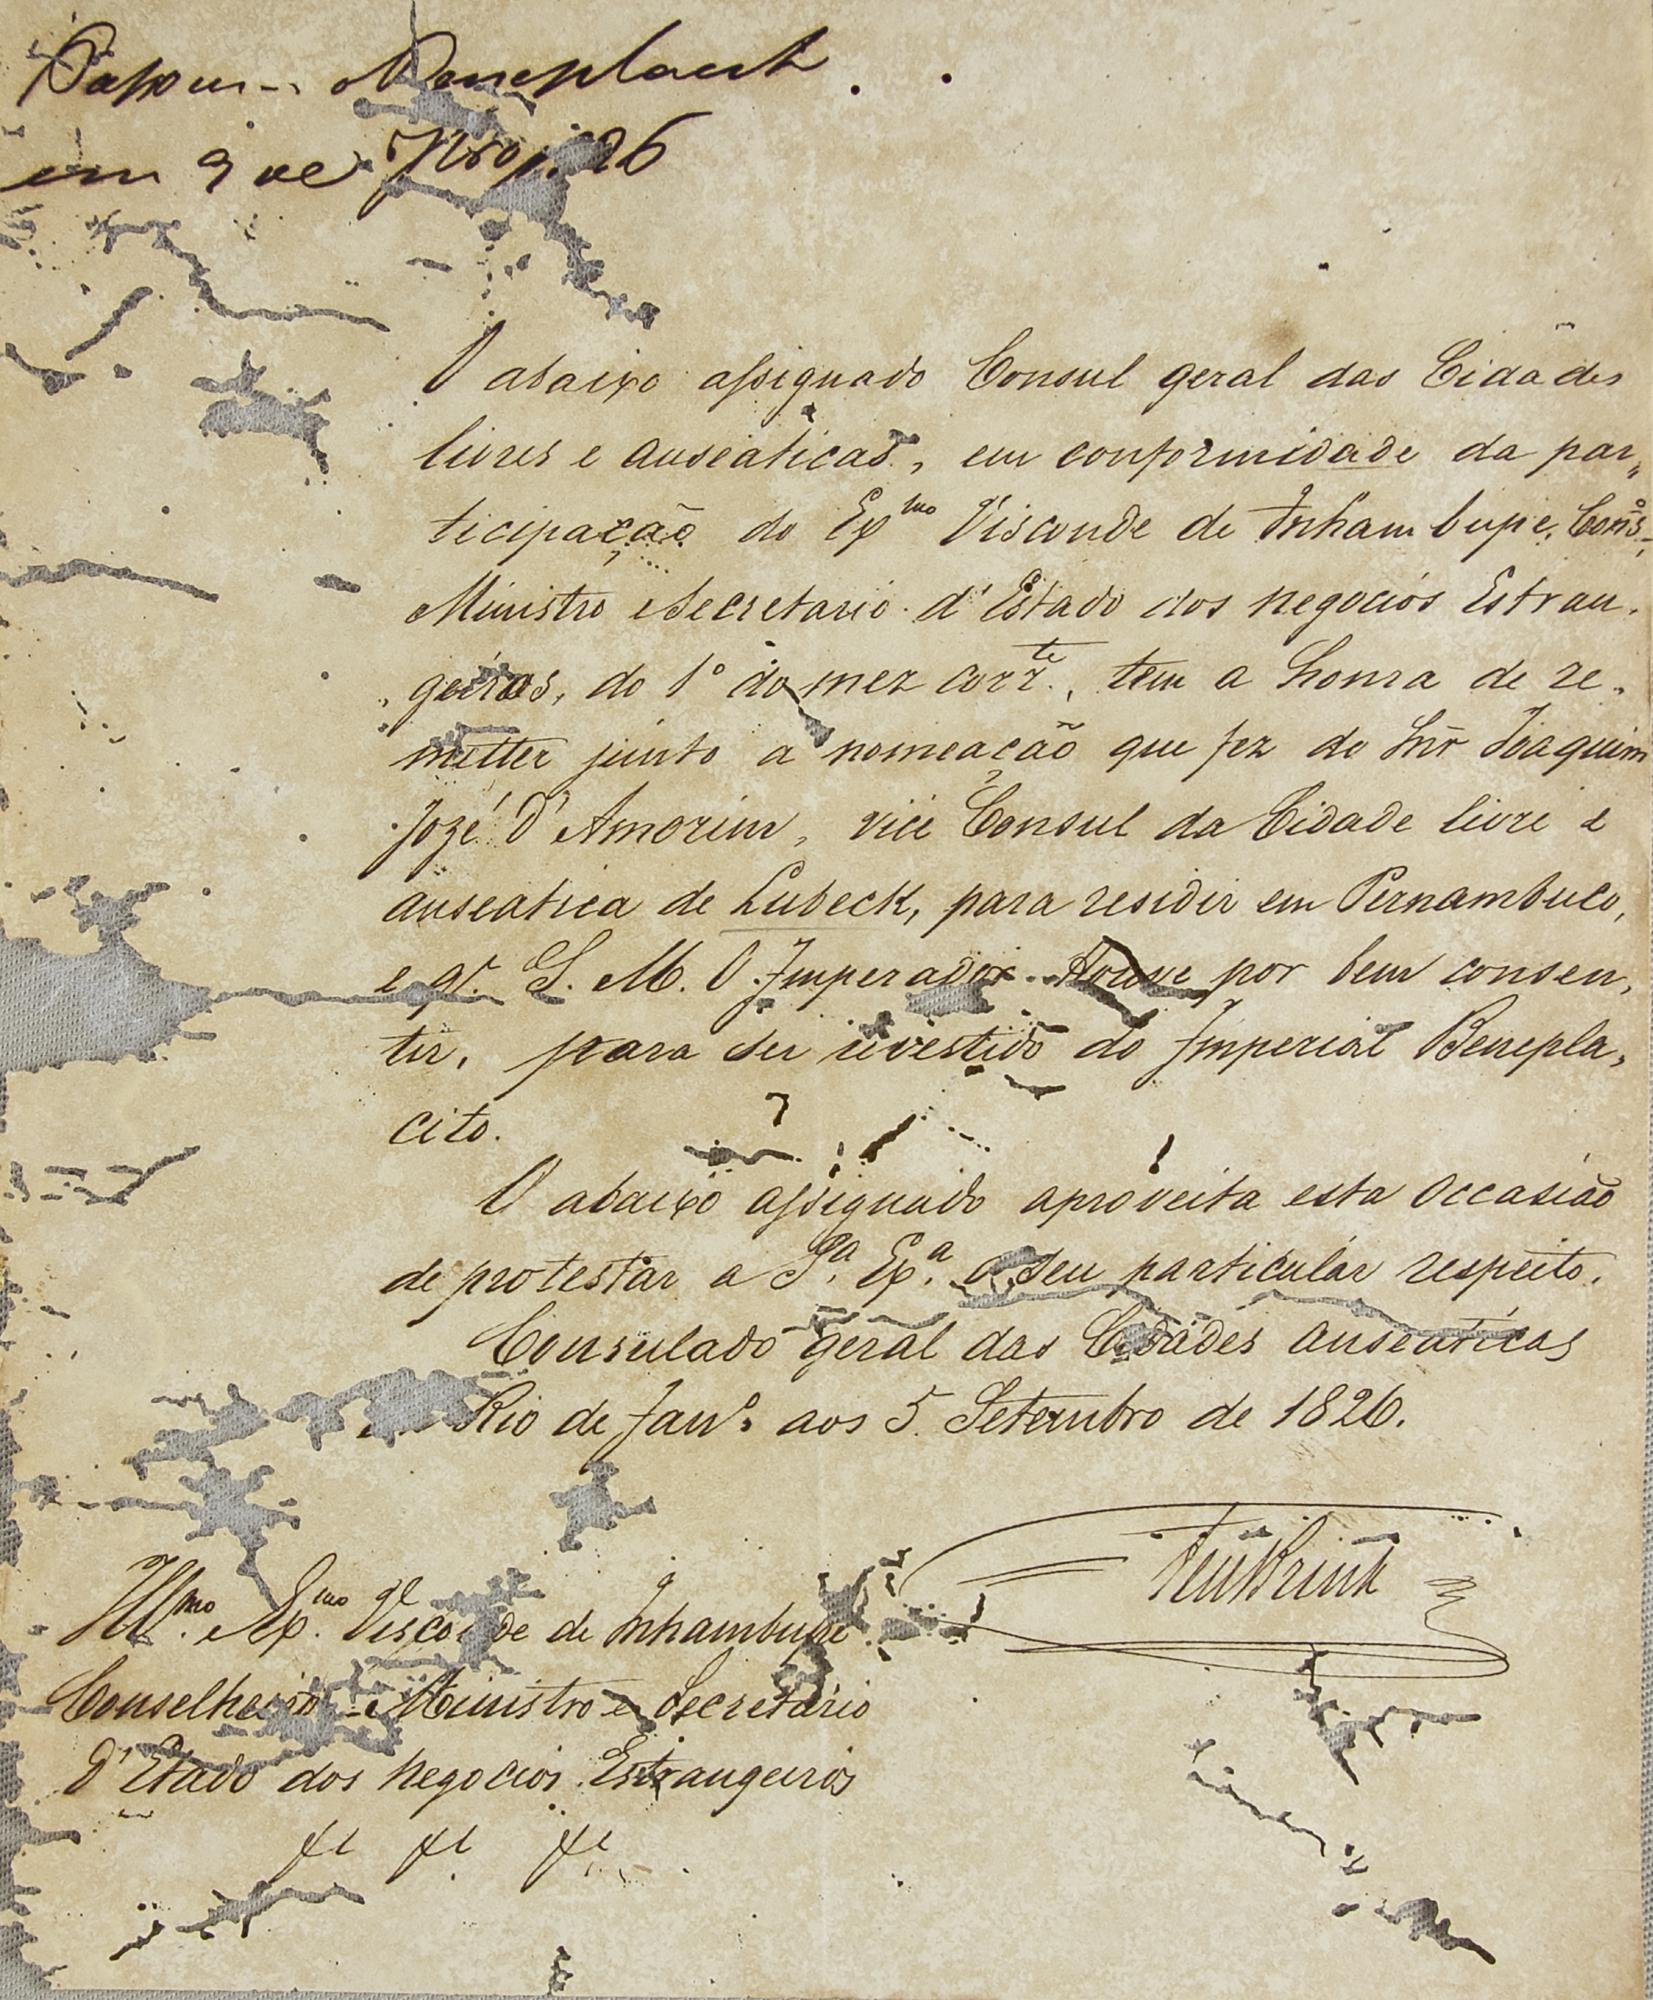 Passou-se o Beneplacit
em 9 de 26
O abaixo assignado Consul geral das Cidades
livres e anseaticas, em conformidade da par„
ticipação do Exmo Visconde de Inhambupe, Cons.
Ministro e Secretario d'Estado dos negocios Estran„
geiros, do 1º do mez corrte., tem a honra de re„
metter junto a nomeação que fez do Snr Joaquim
Jozé D'Amorim, vice Consul da Cidade livre e
anseatica de Lubeck, para residir em Pernambuco,
e qe. S. M. O Imperador Houve por bem consen„
tir, para ser ivestido do Imperial Benepla„
cito.
O abaixo assignado aproveita esta occasião
de protestar a Sa. Exa. o seu particular respeito.
Consulado geral das Cidades anseaticas
Rio de Janº. aos 5 Setembro de 1826.
ten Brink
Illmo. e Exmo. Visconde de Inhambupe
Conselheiro Ministro e Secretario
d'Etado dos negocios Estrangeiros